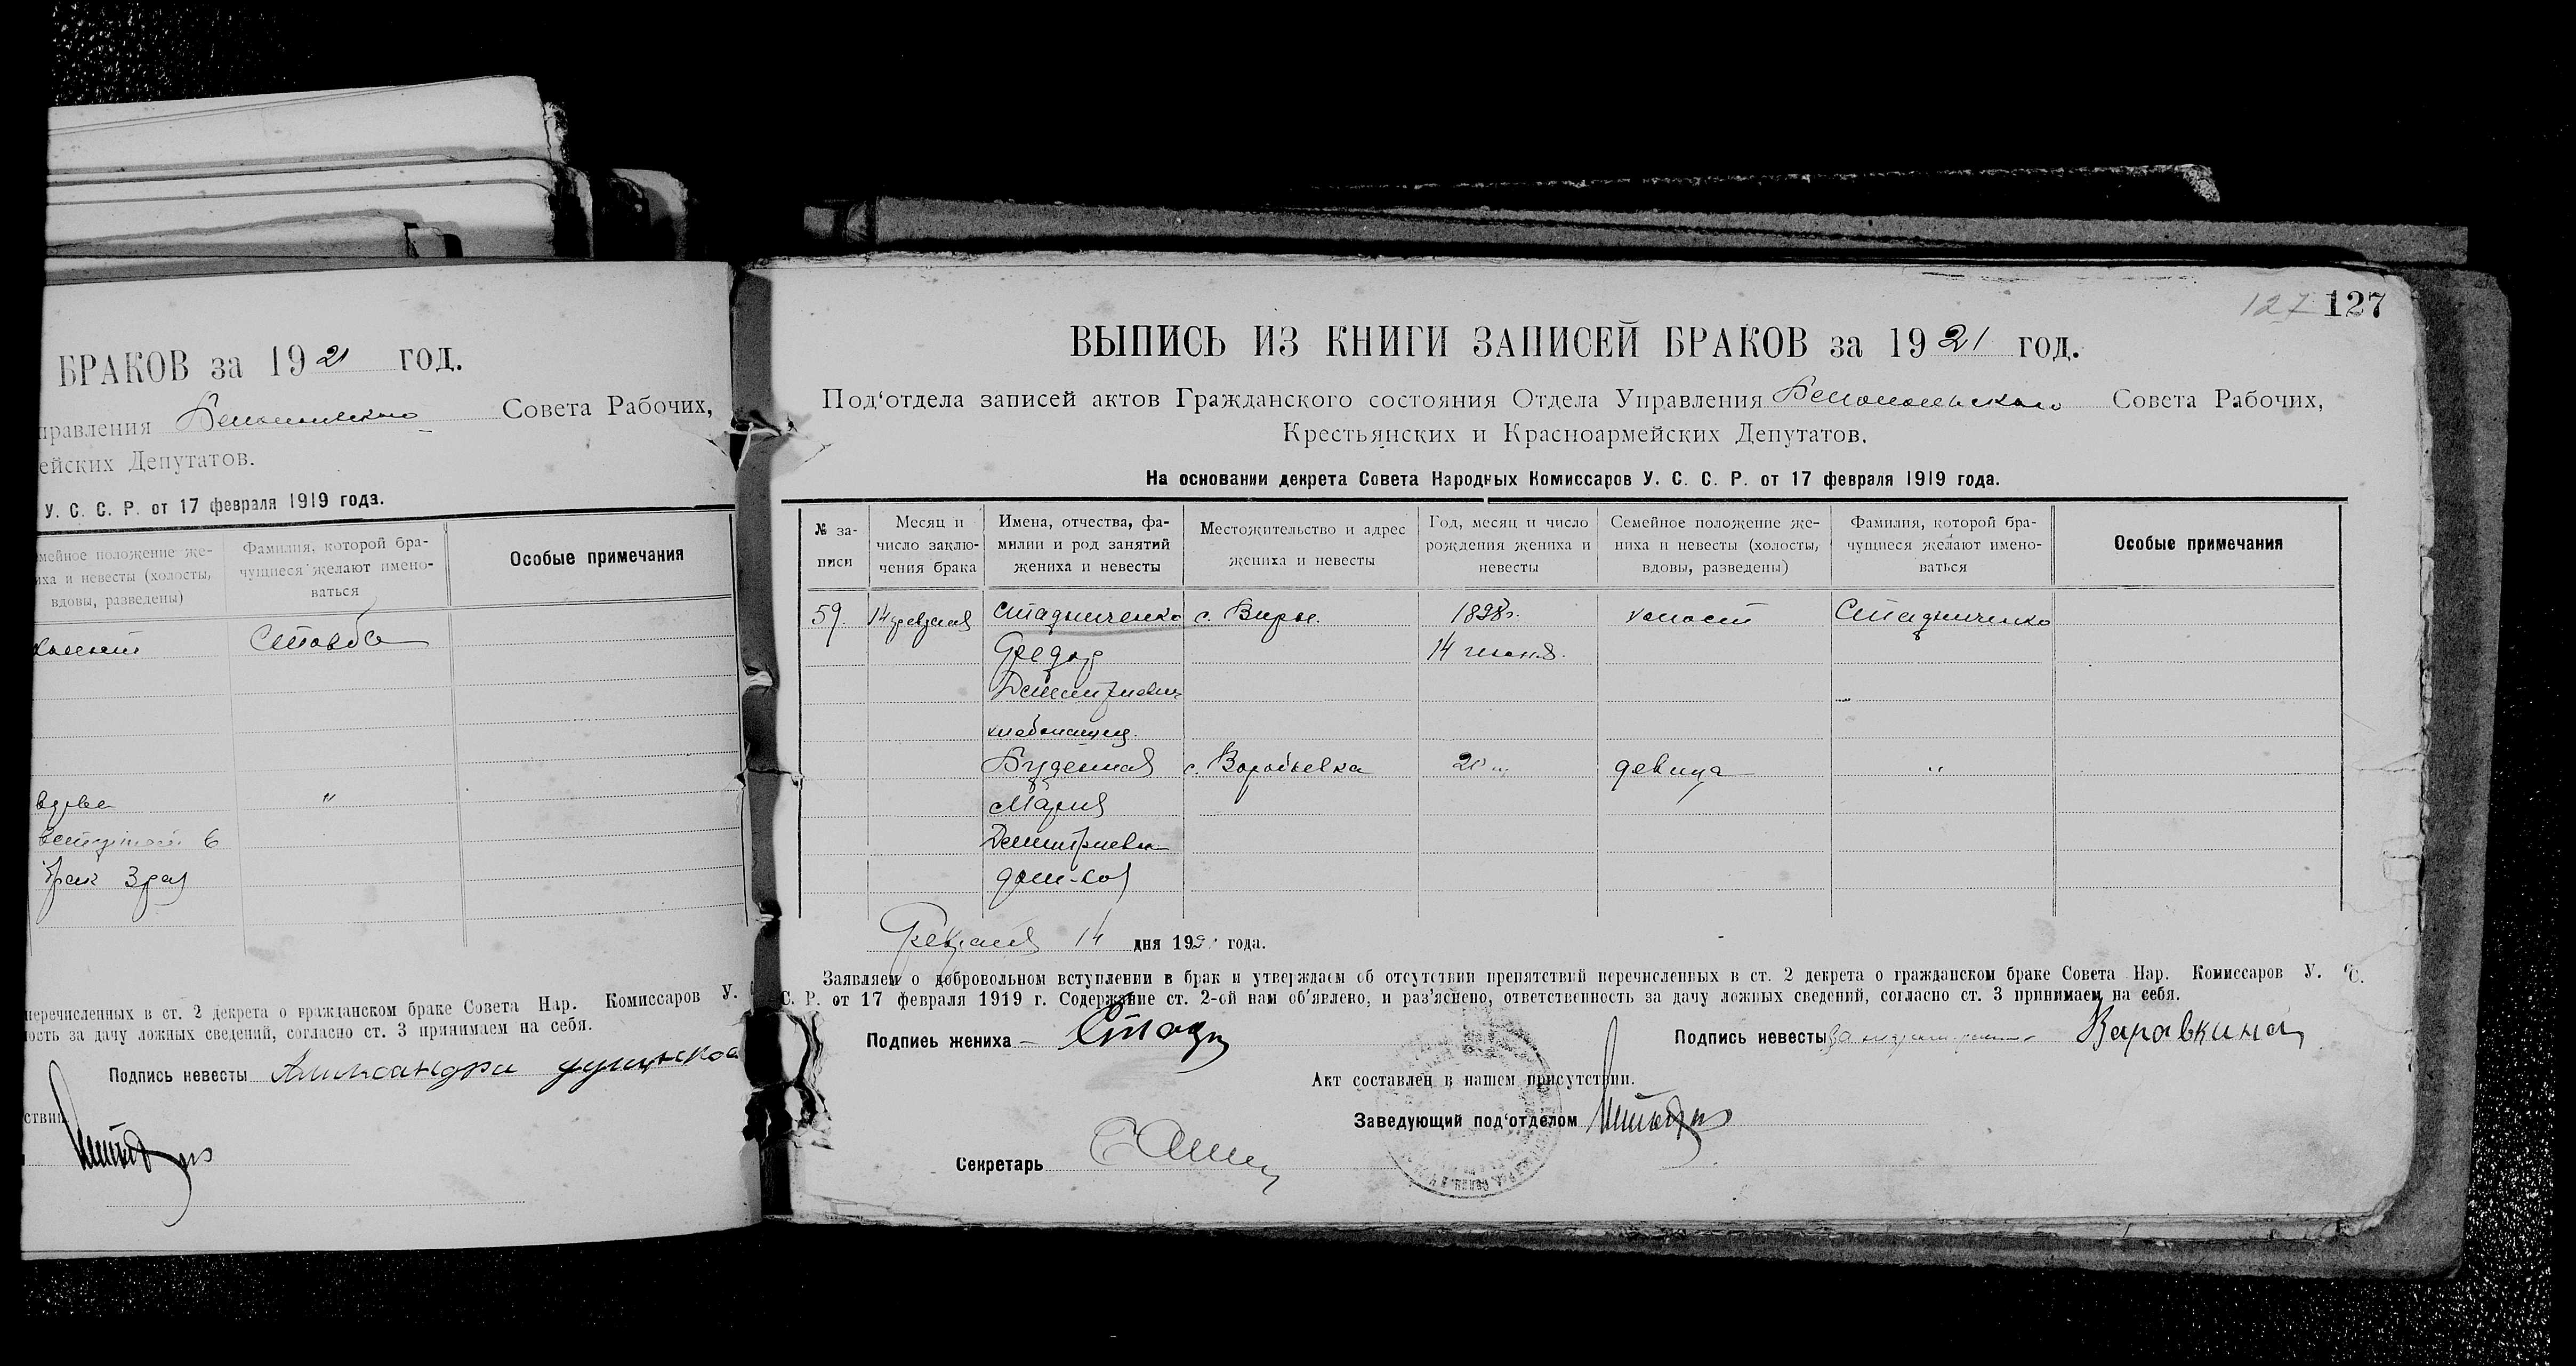 БРАКОВ за 1921 год.
правления Совета Рабочих,
ейских Депутатов.
У. С. С. Р. от 17 февраля 1919 года.
мейное положение же-
иха и невесты (холосты,
вдовы, разведены)
Фамилия, которой бра-
чущиеся желают имено-
ваться
Особые примечания
холост
вдова
"
вступает в
брак 3 раз
перечисленных в ст. 2 декрета о гражданском браке Совета Нар. Комиссаров У.
ность за дачу ложных сведений, согласно ст. 3 принимаем на себя.
Подпись невесты Александра
ствии
127 127
ВЫПИСЬ ИЗ КНИГИ ЗАПИСЕЙ БРАКОВ за 1921 год.
Под‘отдела записей актов Гражданского состояния Отдела Управления Белопольского Совета Рабочих,
Крестьянских и Красноармейских Депутатов.
На основании декрета Совета Народных Комиссаров У. С. С. Р. от 17 февраля 1919 года.
№ за-
писи
Месяц и
число заклю-
чения брака
Имена, отчества, фа-
милии и род занятий
жениха и невесты
Местожительство и адрес
жениха и невесты
Год, месяц и число
рождения жениха и
невесты
Семейное положение же-
ниха и невесты (холосты,
вдовы, разведены)
Фамилия, которой бра-
чущиеся желают имено-
ваться
Особые примечания
59. 14 февраля Стадниченко с. Виры. 1898 г. холост Стадниченко
Федор 14 июня.
Дмитриевич
хлебопашец.
Буденная с. Воробьевка 20 л. девица "
Мария
Дмитриевна
дом-хоз
Февраля 14 дня 1921 года.
Заявляем о добровольном вступлении в брак и утверждаем об отсутствии препятствий перечисленных в ст. 2 декрета о гражданском браке Совета Нар. Комиссаров У. С.
С. Р. от 17 февраля 1919 г. Содержание ст. 2-ой нам об’явлено, и раз’яснено, ответственность за дачу ложных сведений, согласно ст. 3 принимаем на себя.
Подпись жениха – Стадн
Подпись невесты за неграмотную Варавкина
Акт составлен в нашем присутствии.
Заведующий под‘отделом
Секретарь